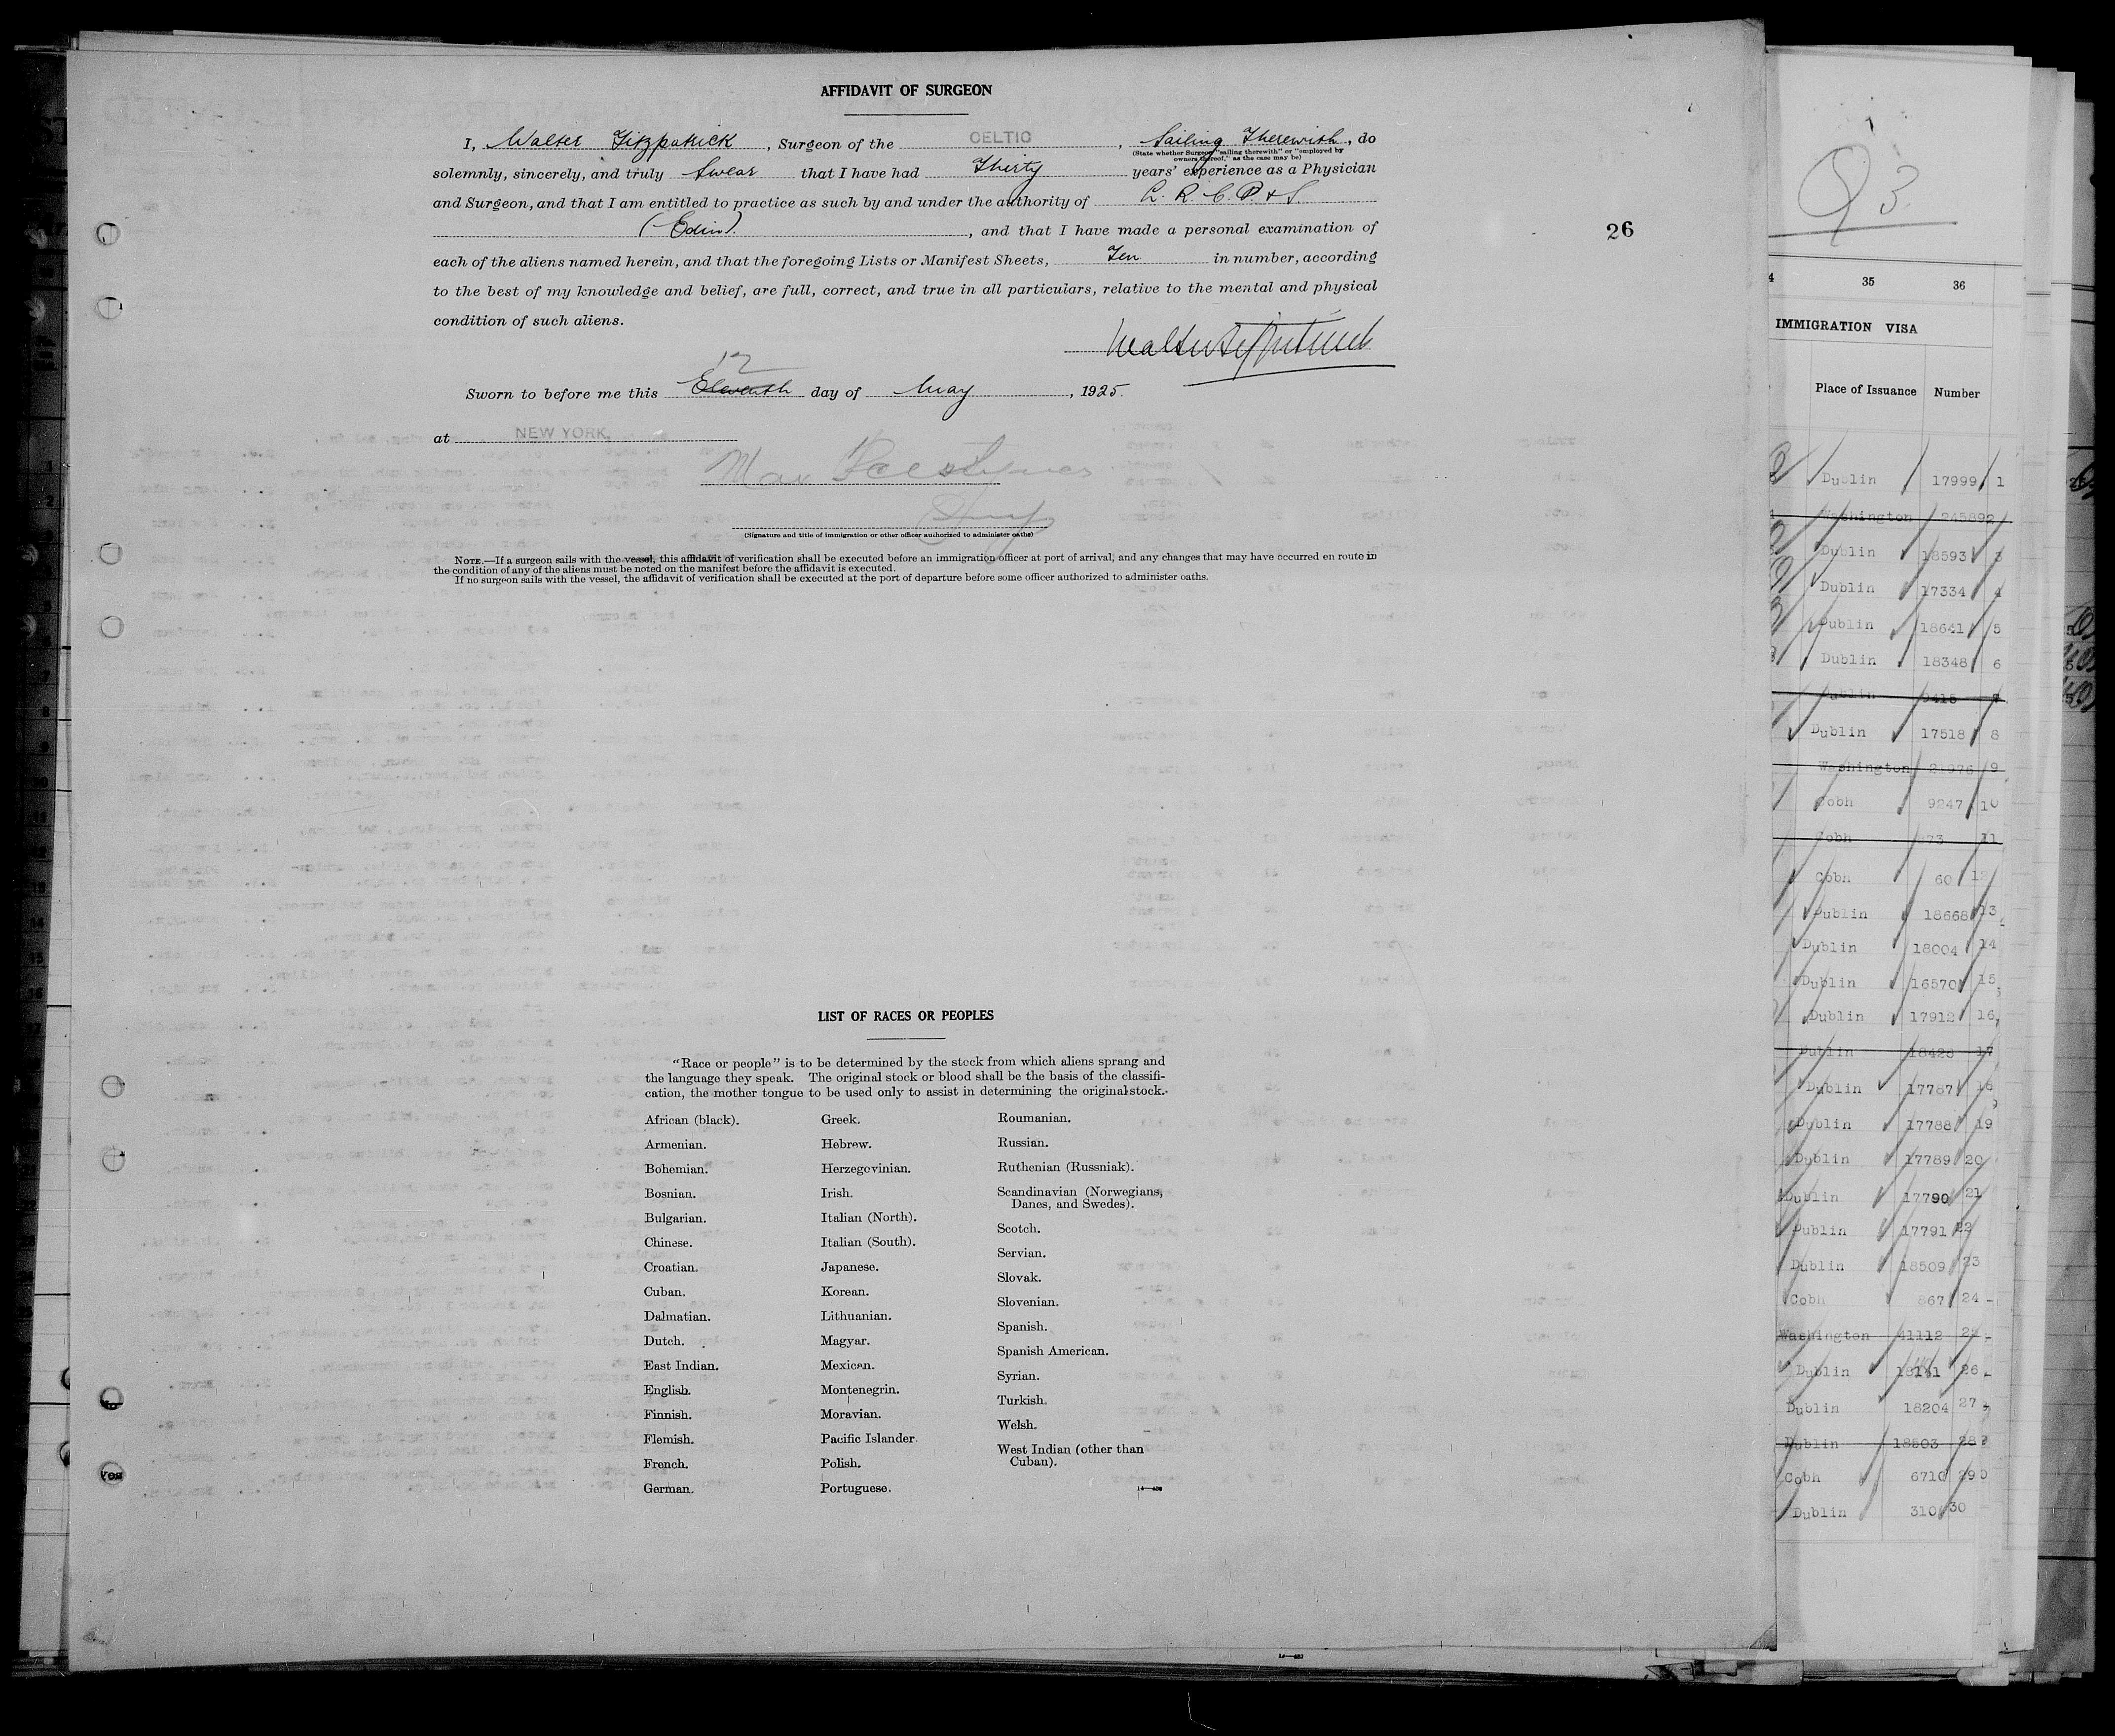 AFFIDAVIT OF SURGEON
I, Walter Fitzpatrick, Surgeon of the CELTIC, Sailing Therewith, do
(State whether Surgeon "sailing therewith" or "employed by
owners thereof," as the case may be)
solemnly, sincerely, and truly Swear that I have had Thirty years' experience as a Physician
and Surgeon, and that I am entitled to practice as such by and under the authority of L. R. C. P. & S.
(Edin)., and that I have made a personal examination of
each of the aliens named herein, and that the foregoing Lists or Manifest Sheets, Ten in number, according
to the best of my knowledge and belief, are full, correct, and true in all particulars, relative to the mental and physical
condition of such aliens.
26
Walter Fitzpatrick
12
Sworn to before me this Eleventh day of May, 1925.
at NEW YORK.
Max
Insp
(Signature and title of immigration or other officer authorized to administer oaths)
NOTE.—If a surgeon sails with the vessel, this affidavit of verification shall be executed before an immigration officer at port of arrival, and any changes that may have occurred en route in
the condition of any of the aliens must be noted on the manifest before the affidavit is executed.
If no surgeon sails with the vessel, the affidavit of verification shall be executed at the port of departure before some officer authorized to administer oaths.
LIST OF RACES OR PEOPLES
"Race or people" is to be determined by the stock from which aliens sprang and
the language they speak. The original stock or blood shall be the basis of the classifi-
cation, the mother tongue to be used only to assist in determining the original stock.
African (black).
Armenian.
Bohemian.
Bosnian.
Bulgarian.
Chinese.
Croatian.
Cuban.
Dalmatian.
Dutch.
East Indian.
English.
Finnish.
Flemish.
French.
German.
Greek.
Hebrew.
Herzegovinian.
Irish.
Italian (North).
Italian (South).
Japanese.
Korean.
Lithuanian.
Magyar.
Mexican.
Montenegrin.
Moravian.
Pacific Islander.
Polish.
Portuguese.
Roumanian.
Russian.
Ruthenian (Russniak).
Scandinavian (Norwegians,
Danes, and Swedes).
Scotch.
Servian.
Slovak.
Slovenian.
Spanish.
Spanish American.
Syrian.
Turkish.
Welsh.
West Indian (other than
Cuban).
3
35 36
IMMIGRATION VISA
Place of Issuance Number
Dublin 17999 1
Washington 245892
Dublin 18593 3
Dublin 17334 4
Dublin 18641 5
Dublin 18348 6
Dublin 9415 7
Dublin 17518 8
Washington 9
Cobh 9247 10
Cobh 73 11
Cobh 60 12
Dublin 18668 13
Dublin 18004 14
Dublin 16570 15
Dublin 17912 16
Dublin 18428 17
Dublin 17787 18
Dublin 17788 19
Dublin 17789 20
Dublin 17790 21
Dublin 17791 22
Dublin 18509 23
Cobh 867 24
Washington 41112 25
Dublin 26
Dublin 18204 27
Dublin 18503 28
Cobh 6710 29
Dublin 310 30
yes